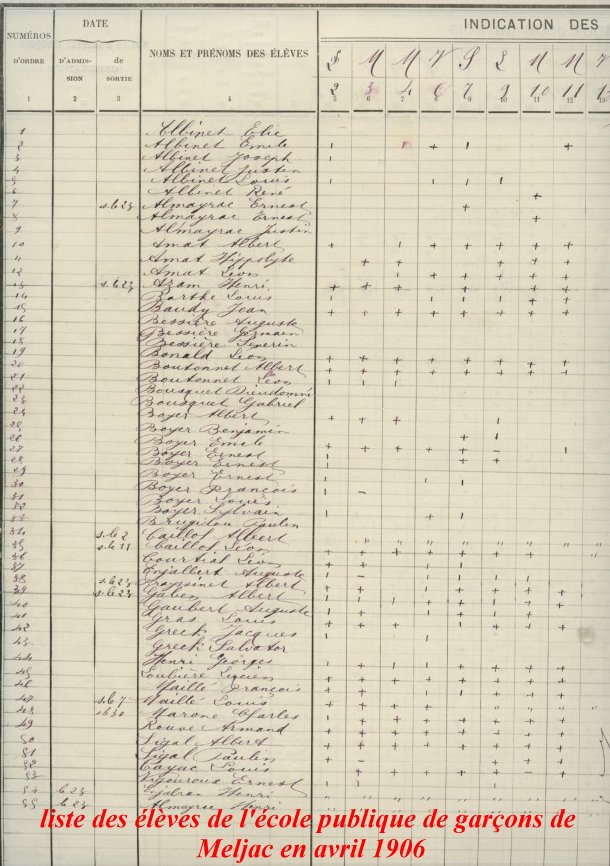 INDICATION DES
NUMÉROS
D'ORDRE
DATE
D'ADMIS-
SION
de
SORTIE
NOMS ET PRÉNOMS DES ÉLÈVES
L M M V S L M M V
2 3 4 6 7 9 10 11 13
1 2 3 4 5 6 7 8 9 10 11 12 13
1 Albinet Elie
2 Albinet Emile
3 Albinet Joseph
4 Albinet Justin
5 Albinet Louis
6 Albinet René
7 s. le 23 Almayrac Ernest
8 Almayrac Ernest
9 Almayrac Justin
10 Amat Albert
11 Amat Hippolyte
12 Amat Léon
13 s. le 23 Azam Henri
14 Barthe Louis
15 Baudy Jean
16 Bessière Auguste
17 Bessière Germain
18 Bessière Severin
19 Bonald Léon
20 Boutonnet Albert
21 Boutonnet Léon
22 Bousquet Dieudonné
23 Bousquet Gabriel
24 Boyer Albert
25 Boyer Benjamin
26 Boyer Emile
27 Boyer Ernest
28 Boyer Ernest
29 Boyer Ernest
30 Boyer François
31 Boyer Louis
32 Boyer Sylvain
33 Paulin
34 s. le 2 Caillol Albert
35 s. le 11 Caillol Léon
36 Courtial Léon
37 Enjalbert Auguste
38 s. le 23 Albert
39 s. le 23 Gaben Albert
40 Gaubert Auguste
41 Gras Louis
42 Greck Jacques
43 Greck Salvator
44 Henri Georges
45 Loubière
46 Maillé François
47 s. le 7 Maillé Louis
48 s. le 30 Marone Charles
49 Rouve Armand
50 Sigal Albert
51 Sigal Paulin
52 Louis
53 Vigouroux Ernest
54 le 23 Henri
55 le 23 Almayrac Henri
liste des élèves de l'école publique de garçons de
Meljac en avril 1906